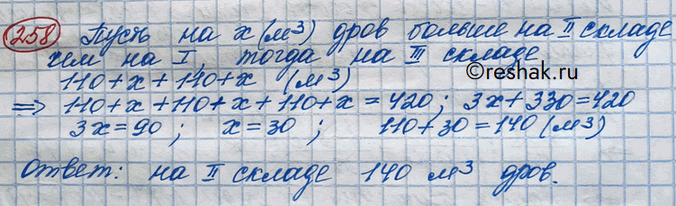 258 Пусть на x (м³) дров больше на II складе
чем на I, тогда на III складе
©reshak.ru
110+x+110+x (м³)
⇒ 110+x+110+x+110+x=420; 3x+330=420
3x=90; x=30; 110+30=140 (м³)
Ответ: на II складе 140 м³ дров.